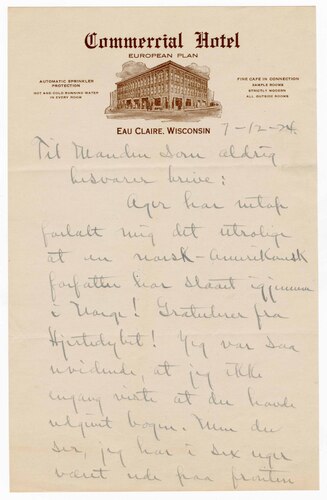 Commercial Hotel
EUROPEAN PLAN
AUTOMATIC SPRINKLER
PROTECTION
HOT AND COLD RUNNING WATER
IN EVERY ROOM
FINE CAFE IN CONNECTION
SAMPLE ROOMS
STRICTLY MODERN
ALL OUTSIDE ROOMS
EAU CLAIRE, WISCONSIN
7-12-24.
Til Manden som aldrig
besvarer brive:
Ager har netop
fortalt mig det utrolige
at en norsk-Amerikansk
forfatter har slaaet igjennem
i Norge! Gratulerer fra
Hjertedybet! Jeg var saa
uvidende, at jeg ikke
engang viste at du havde
udgivet bogen. Men du
ser, jeg har i sex uger
været ude paa fronten